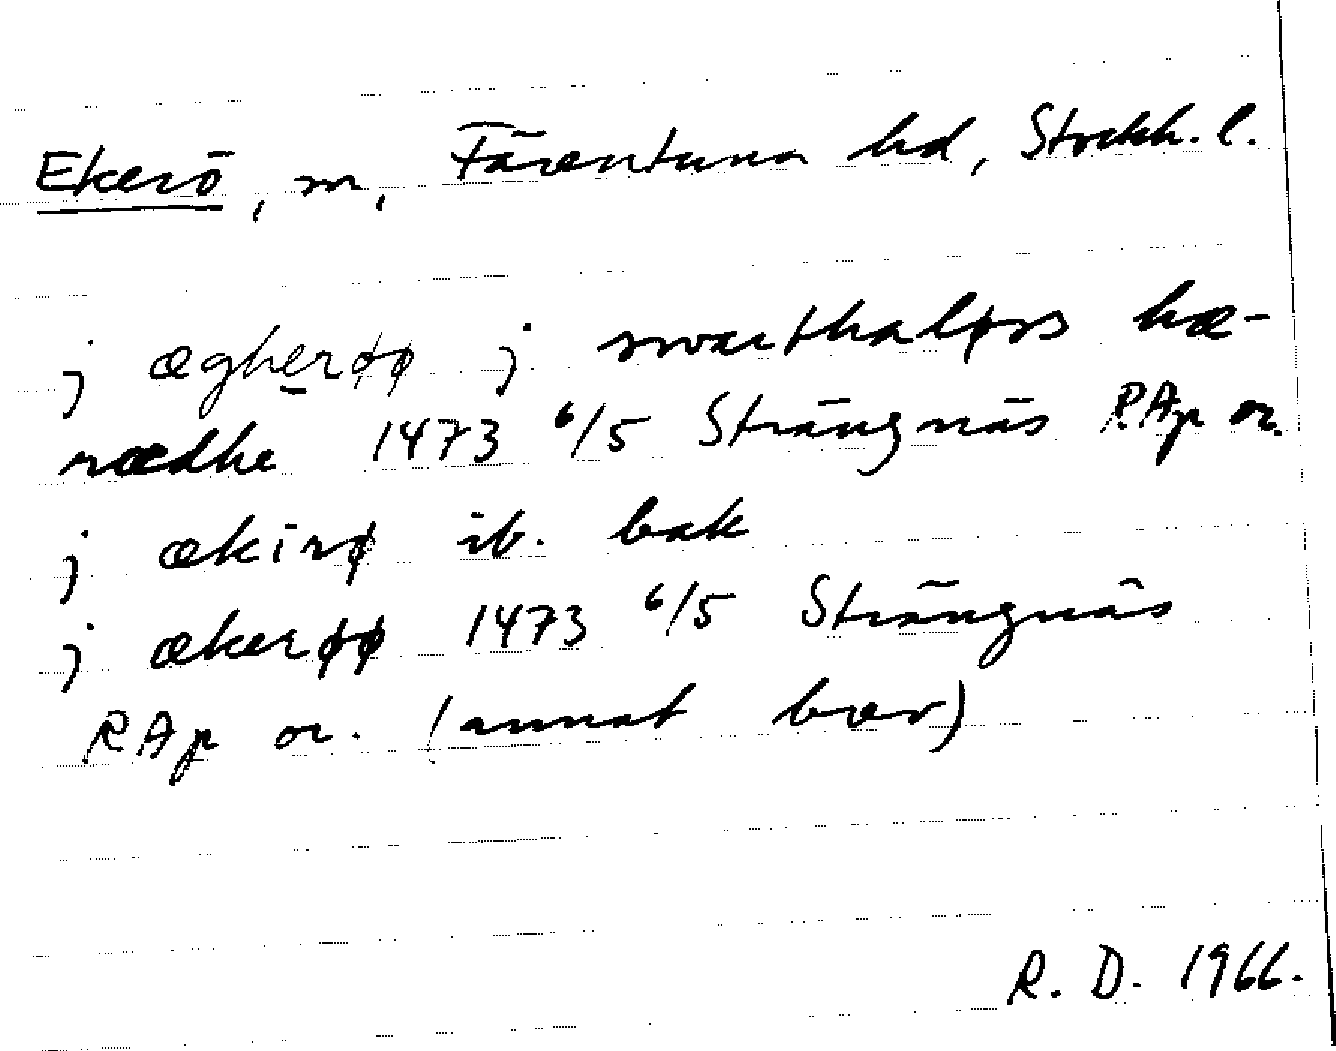 Ekerö, sn, Färentuna hd, Stockh. l.
j ægherøø j swarthaløøs hæ-
rædhe 1473 6/5 Strängnäs RAp or.
j ækirø ib. bak
j ækerøø 1473 6/5 Strängnäs
RAp or. (annat brev)
R. D. 1966.